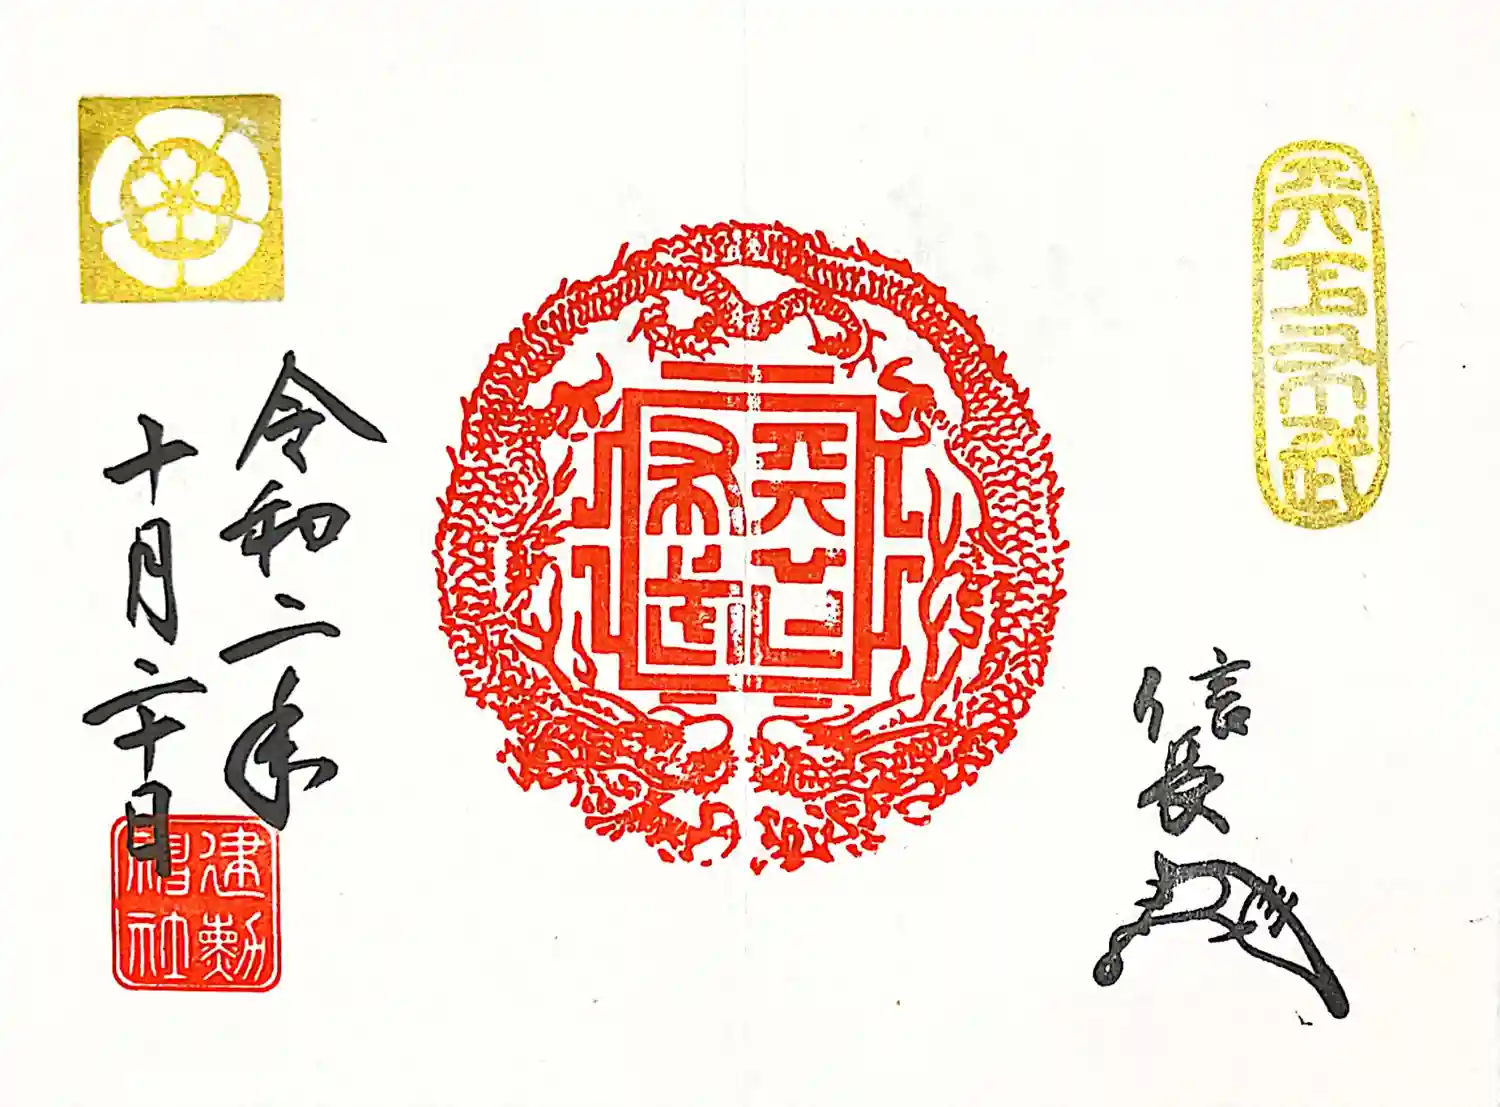 天下布武
信長
天下布武
令和二年
十月二十日
建勲神社